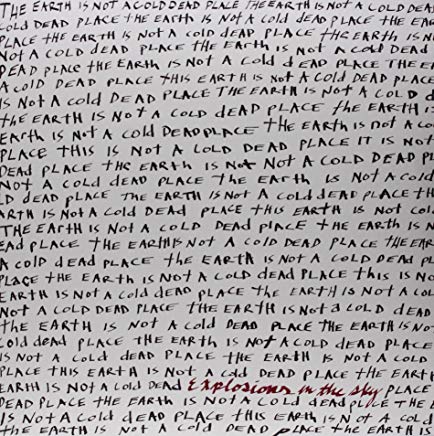 THE EARTH IS NOT A COLD DEAD PLACE THE EARTH IS NOT A COLD DEAD
COLD DEAD PLACE THE EARTH IS NOT A COLD DEAD PLACE THE EAR
PLACE THE EARTH IS NOT A COLD DEAD PLACE THE EARTH IS
NOT A COLD DEAD PLACE THE EARTH IS NOT A COLD DEAD
DEAD PLACE THE EARTH IS NOT A COLD DEAD PLACE THE EARTH IS
A COLD DEAD PLACE THIS EARTH IS NOT A COLD DEAD PLACE
IS NOT A COLD DEAD PLACE THE EARTH IS NOT A COLD D
THE EARTH IS NOT A COLD DEAD PLACE THE EARTH IS
EARTH IS NOT A COLD DEAD PLACE THE EARTH IS NOT A CO
PLACE THIS IS NOT A COLD DEAD PLACE IT IS NOT
DEAD PLACE THE EARTH IS NOT NOT A COLD DEAD PLACE
NOT A COLD DEAD PLACE THE EARTH IS NOT A COLD DEA
LD DEAD PLACE THE EARTH IS NOT A COLD DEAD PLACE TH
ARTH IS NOT A COLD DEAD PLACE THIS EARTH IS NOT COL
THE EARTH IS NOT A COLD DEAD PLACE THE EARTH IS N
EAD PLACE THE EARTH IS NOT A COLD DEAD PLACE THE EAR
A COLD DEAD PLACE THE EARTH IS NOT A COLD DEAD PLAC
PLACE THE EARTH IS NOT A COLD DEAD PLACE THIS IS NO
EARTH IS NOT A COLD DEAD PLACE THE EARTH IS NOT A COLD
NOT A COLD DEAD PLACE THE EARTH IS NOT A COLD DEAD
THE EARTH IS NOT A COLD DEAD PLACE THE EARTH IS NOT
COLD DEAD PLACE THE EARTH IS NOT A COLD DEAD PLACE
IS NOT A COLD DEAD PLACE THE EARTH IS NOT A COLD
PLACE THIS EARTH IS NOT A COLD DEAD PLACE THE EARTH
EARTH IS NOT A COLD DEAD Explosions in the sky PLACE
DEAD PLACE THE EARTH IS NOT A COLD DEAD PLACE THE E
IS NOT A COLD DEAD PLACE THIS EARTH IS NOT A COLD